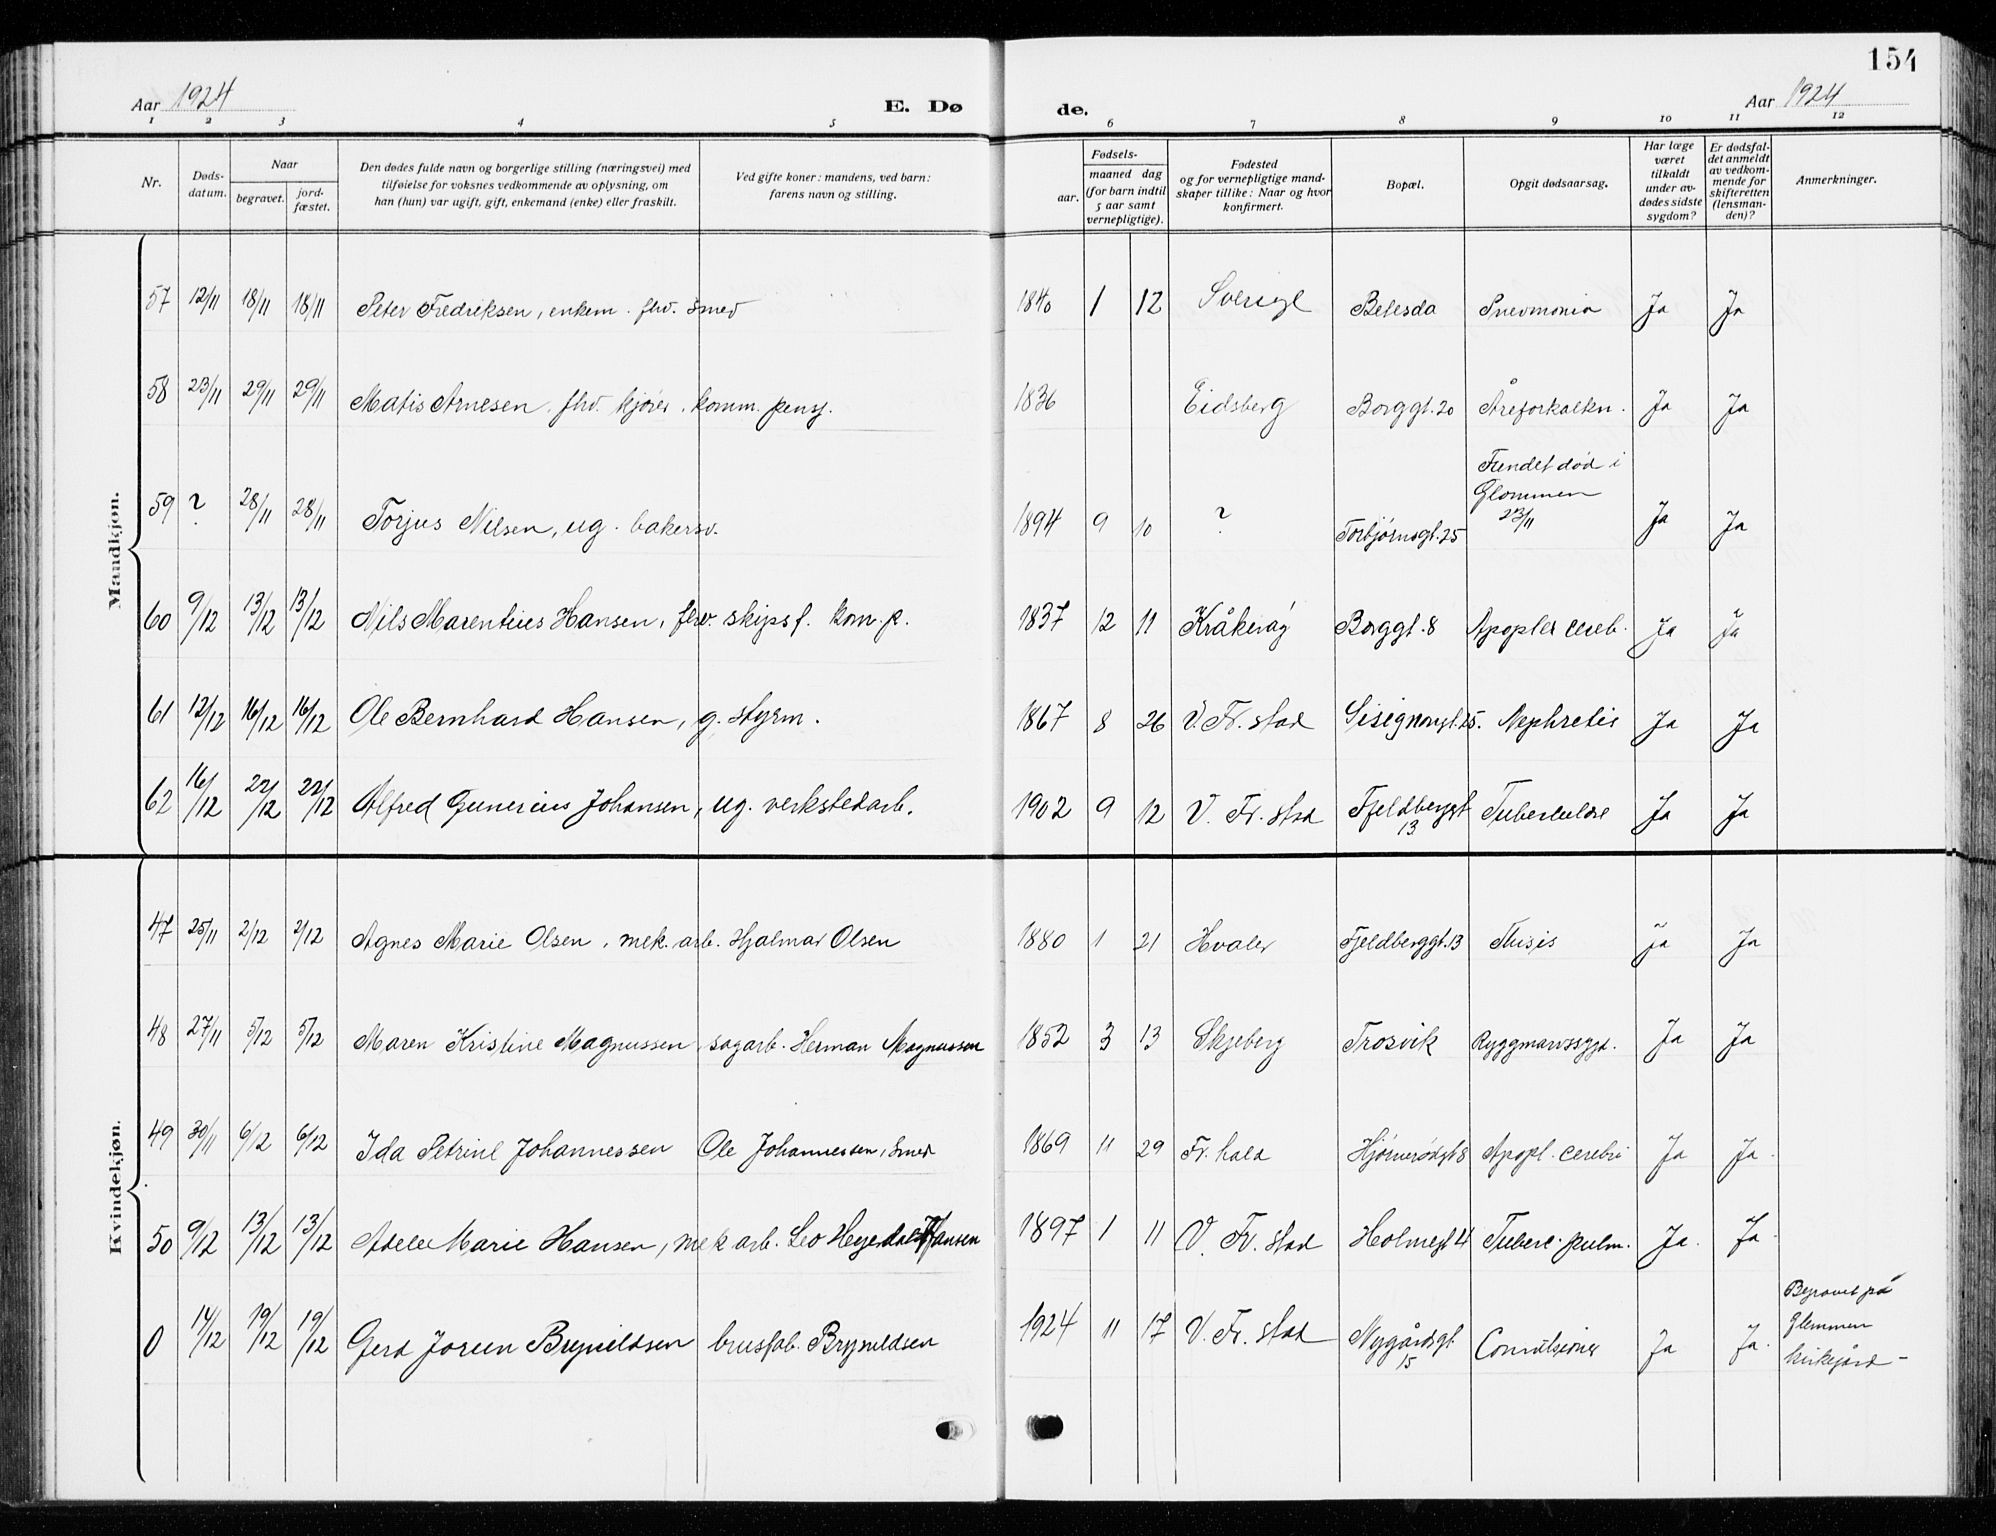 154
Aar 1924 E. Dø de. Aar 1924
1 2 3 4 5 6 7 8 9 10 11 12
Nr. Dødsdatum. Naar begravet. jordfæstet. Den dødes fulde navn og borgerlige stilling (næringsvei) med tilføielse for voksnes vedkommende av oplysning, om han (hun) var ugift, gift, enkemand (enke) eller fraskilt. Ved gifte koner: mandens, ved barn: farens navn og stilling. Fødsels- aar. maaned dag (for barn indtil 5 aar samt vernepligtige). Fødested og for vernepligtige mandskaper tillike: Naar og hvor konfirmert. Bopæl. Opgit dødsaarsag. Har læge været tilkaldt under avdødes sidste sygdom? Er dødsfaldet anmeldt av vedkommende for skifteretten (lensmanden)? Anmerkninger.
Mandkjøn.
57 12/11 18/11 18/11 Peter Fredriksen, enkem. fhv. smed 1840 1 12 Sverige Betesda Pnevmonia Ja Ja
58 23/11 29/11 29/11 Matis Arnesen, fhv. kjører, komm. pensj. 1836 Eidsberg Borggt. 20 Åreforkalkn. Ja Ja
59 ? 28/11 28/11 Torjus Nilsen, ug. bakersv. 1894 9 10 ? Torbjørnsgt. 25 Fundet død i Glommen 23/11 Ja Ja
60 9/12 13/12 13/12 Nils Marentius Hansen, fhv. skipsf. kom. p. 1837 12 11 Kråkerøy Borggt. 8 Apoplex cereb. Ja Ja
61 12/12 16/12 16/12 Ole Bernhard Hansen, g. styrm. 1867 8 26 V. Fr.stad 25. Nephretis Ja Ja
62 16/12 22/12 22/12 Alfred Gunerius Johansen, ug. verkstedarb. 1902 9 12 V. Fr.stad Fjeldberggt 13 Tuberkulose Ja Ja
Kvindekjøn.
47 25/11 2/12 2/12 Agnes Marie Olsen, mek. arb. Hjalmar Olsen 1880 1 21 Hvaler Fjeldberggt. 13 Thisis Ja Ja
48 27/11 5/12 5/12 Maren Kristine Magnussen, sagarb. Herman Magnussen 1852 3 13 Skjeberg Trosvik Ryggmarvssygd. Ja Ja
49 30/11 6/12 6/12 Ida Petrine Johannessen Ole Johannessen, smed 1869 11 29 Fr.hald 8 Apopl. cerebri Ja Ja.
50 9/12 13/12 13/12 Adele Marie Hansen, mek arb. Leo Heyerdal Hansen 1897 1 11 V. Fr.stad Holmegt 4 Tuberc. pulm. Ja. Ja.
0 14/12 19/12 19/12 Gerd Joreen Brynildsen brusfab. Brynildsen 1924 11 17 V. Fr.stad Nygårdsgt 15 Convulsiones Ja Ja. Begravet på
Glemmen
kirkegård –